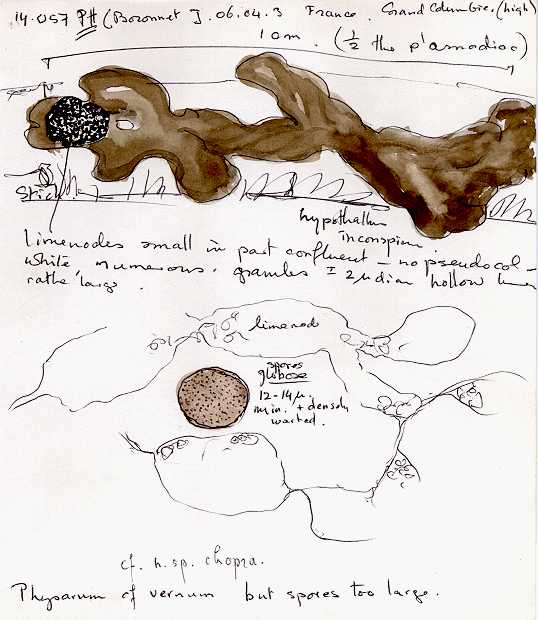 14.057 PH (Bozonnet J. 06.04.3 France. Grand Columbier (high)
10m. (½ the plasmodioc)
Stick
hypothallus
inconspicu.
Limenodes small in part confluent – no pseudocol –
white, numerous, granules ± 2µ diam hollow
rathe large.
limenod
spores
globose
12-14µ.
min. + densely
warted.
cf. n. sp. chopra.
Physarum cf vernum but spores too large.